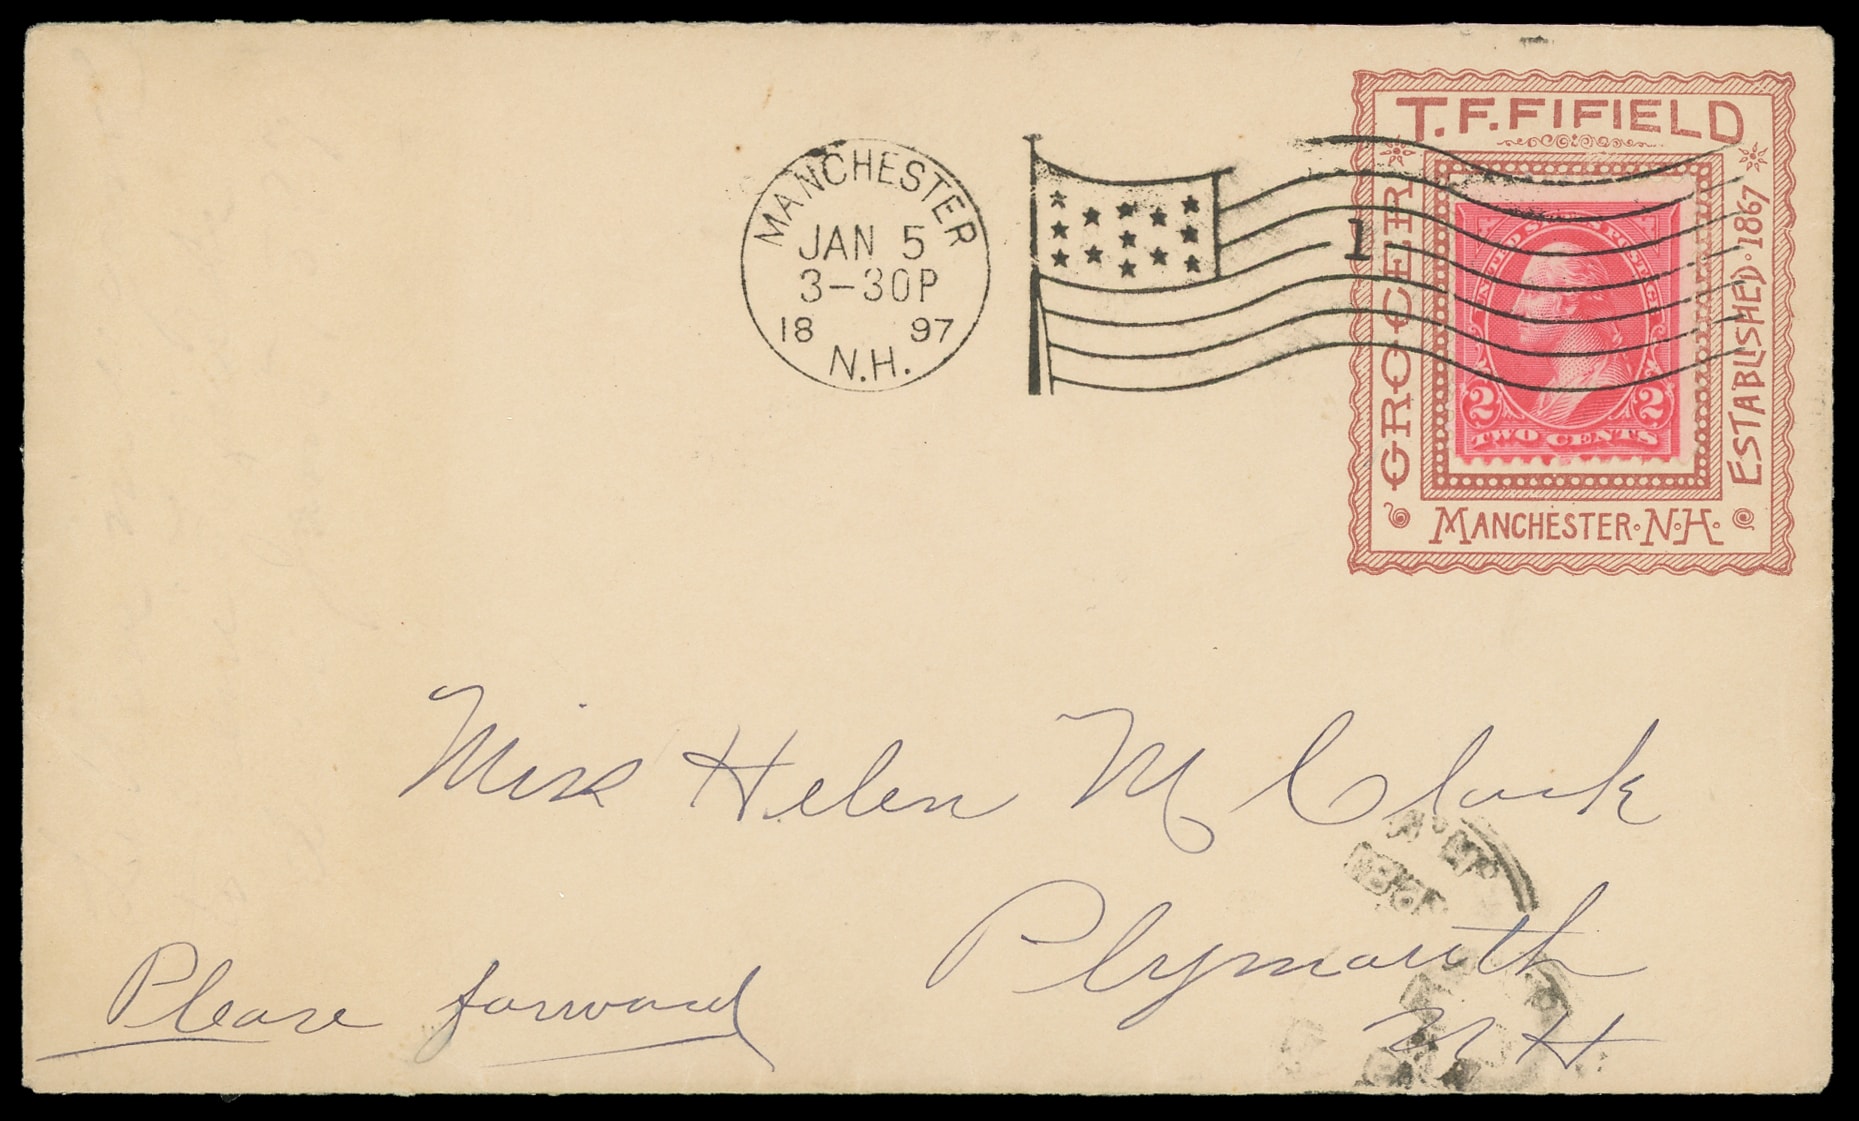 MANCHESTER
JAN 5
3-30P
18 97
N.H.
1
T.F.FIFIELD
GROCER
ESTABLISHED·1867
MANCHESTER·N·H·
UNITED STATES POSTAGE
2 2
TWO CENTS
Miss Helen M Clock
Plymouth
N H
Please forward